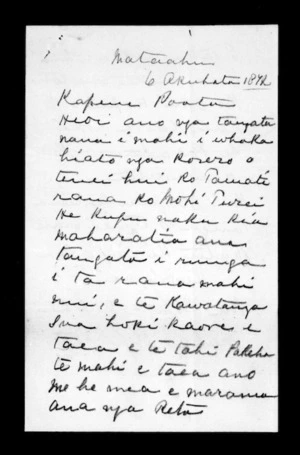 Mataahu
6 Akuhata 1872
Kapene Poata
Heoi ano nga tangata
nana i mahi i whaka
hiato nga korero o
tenei hui ko Tamati
raua ko Mohi Turei
He kupu naku kia
maharatia ana
tangata i runga
i ta raua mahi
nui, e te Kawatanga
Ina hoki kaore e
taea e te tahi Pakeha
te mahi e taea ano
me he mea e marama
ana nga Reta